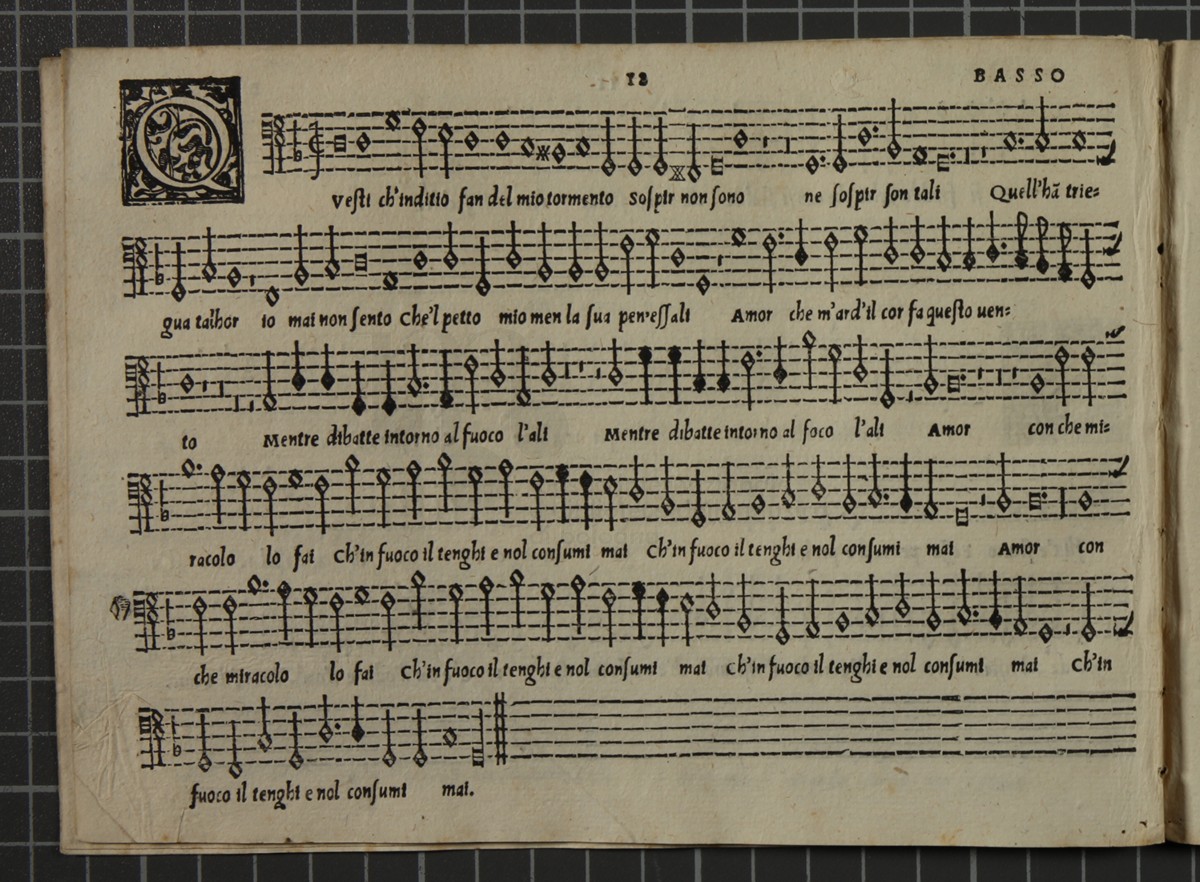 12 BASSO
Q
Vesti ch'inditio fan del mio tormento Sospir non sono ne sospir son tali Quell'hã trie=
gua talhor io mai non sento Che'l petto mio men la sua pen'essali Amor che m'ard'il cor fa questo uen=
to Mentre dibatte intorno al fuoco l'ali Mentre dibatte intorno al foco l'ali Amor con che mi=
racolo lo fai Ch'in fuoco il tenghi e nol consumi mai Ch'in fuoco il tenghi e nol consumi mai Amor con
che miracolo lo fai Ch'in fuoco il tenghi e nol consumi mai Ch'in fuoco il tenghi e nol consumi mai Ch'in
fuoco il tenghi e nol consumi mai.